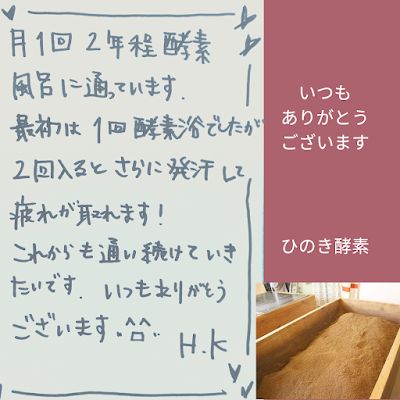 月1回 2年程 酵素
風呂に通っています.
最初は 1回酵素浴でしたが
2回入ると さらに発汗して
疲れが取れます!
これからも通い続けていき
たいです. いつもありがとう
ございます.^^
H.K
いつも
ありがとう
ございます
ひのき酵素